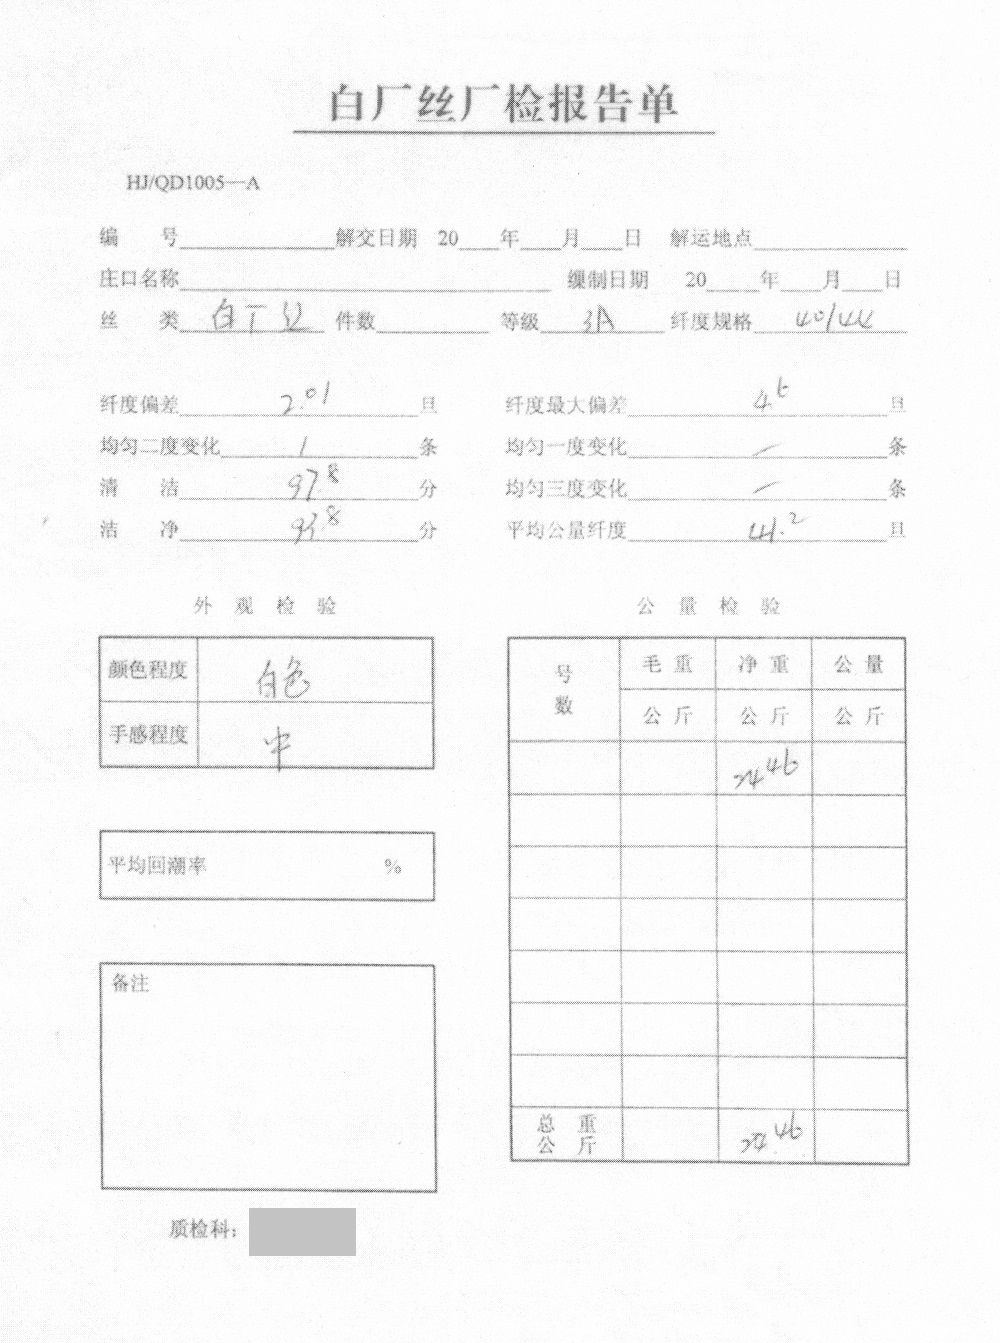 白厂丝厂检报告单
HJ/QD1005—A
编 号 解交日期 20 年 月 日 解运地点
庄口名称 缫制日期 20 年 月 日
丝 类 白厂丝 件数 等级 3A 纤度规格 40/44
纤度偏差 2.01 旦 纤度最大偏差 4.6 旦
均匀二度变化 1 条 均匀一度变化 — 条
清 洁 97.8 分 均匀三度变化 — 条
洁 净 93.8 分 平均公量纤度 41.2 旦
外观检验 公量检验
颜色程度 白色
手感程度 中
号数 毛重 净重 公量
公斤 公斤 公斤
46
平均回潮率 %
备注
总重 公斤 46
质检科：